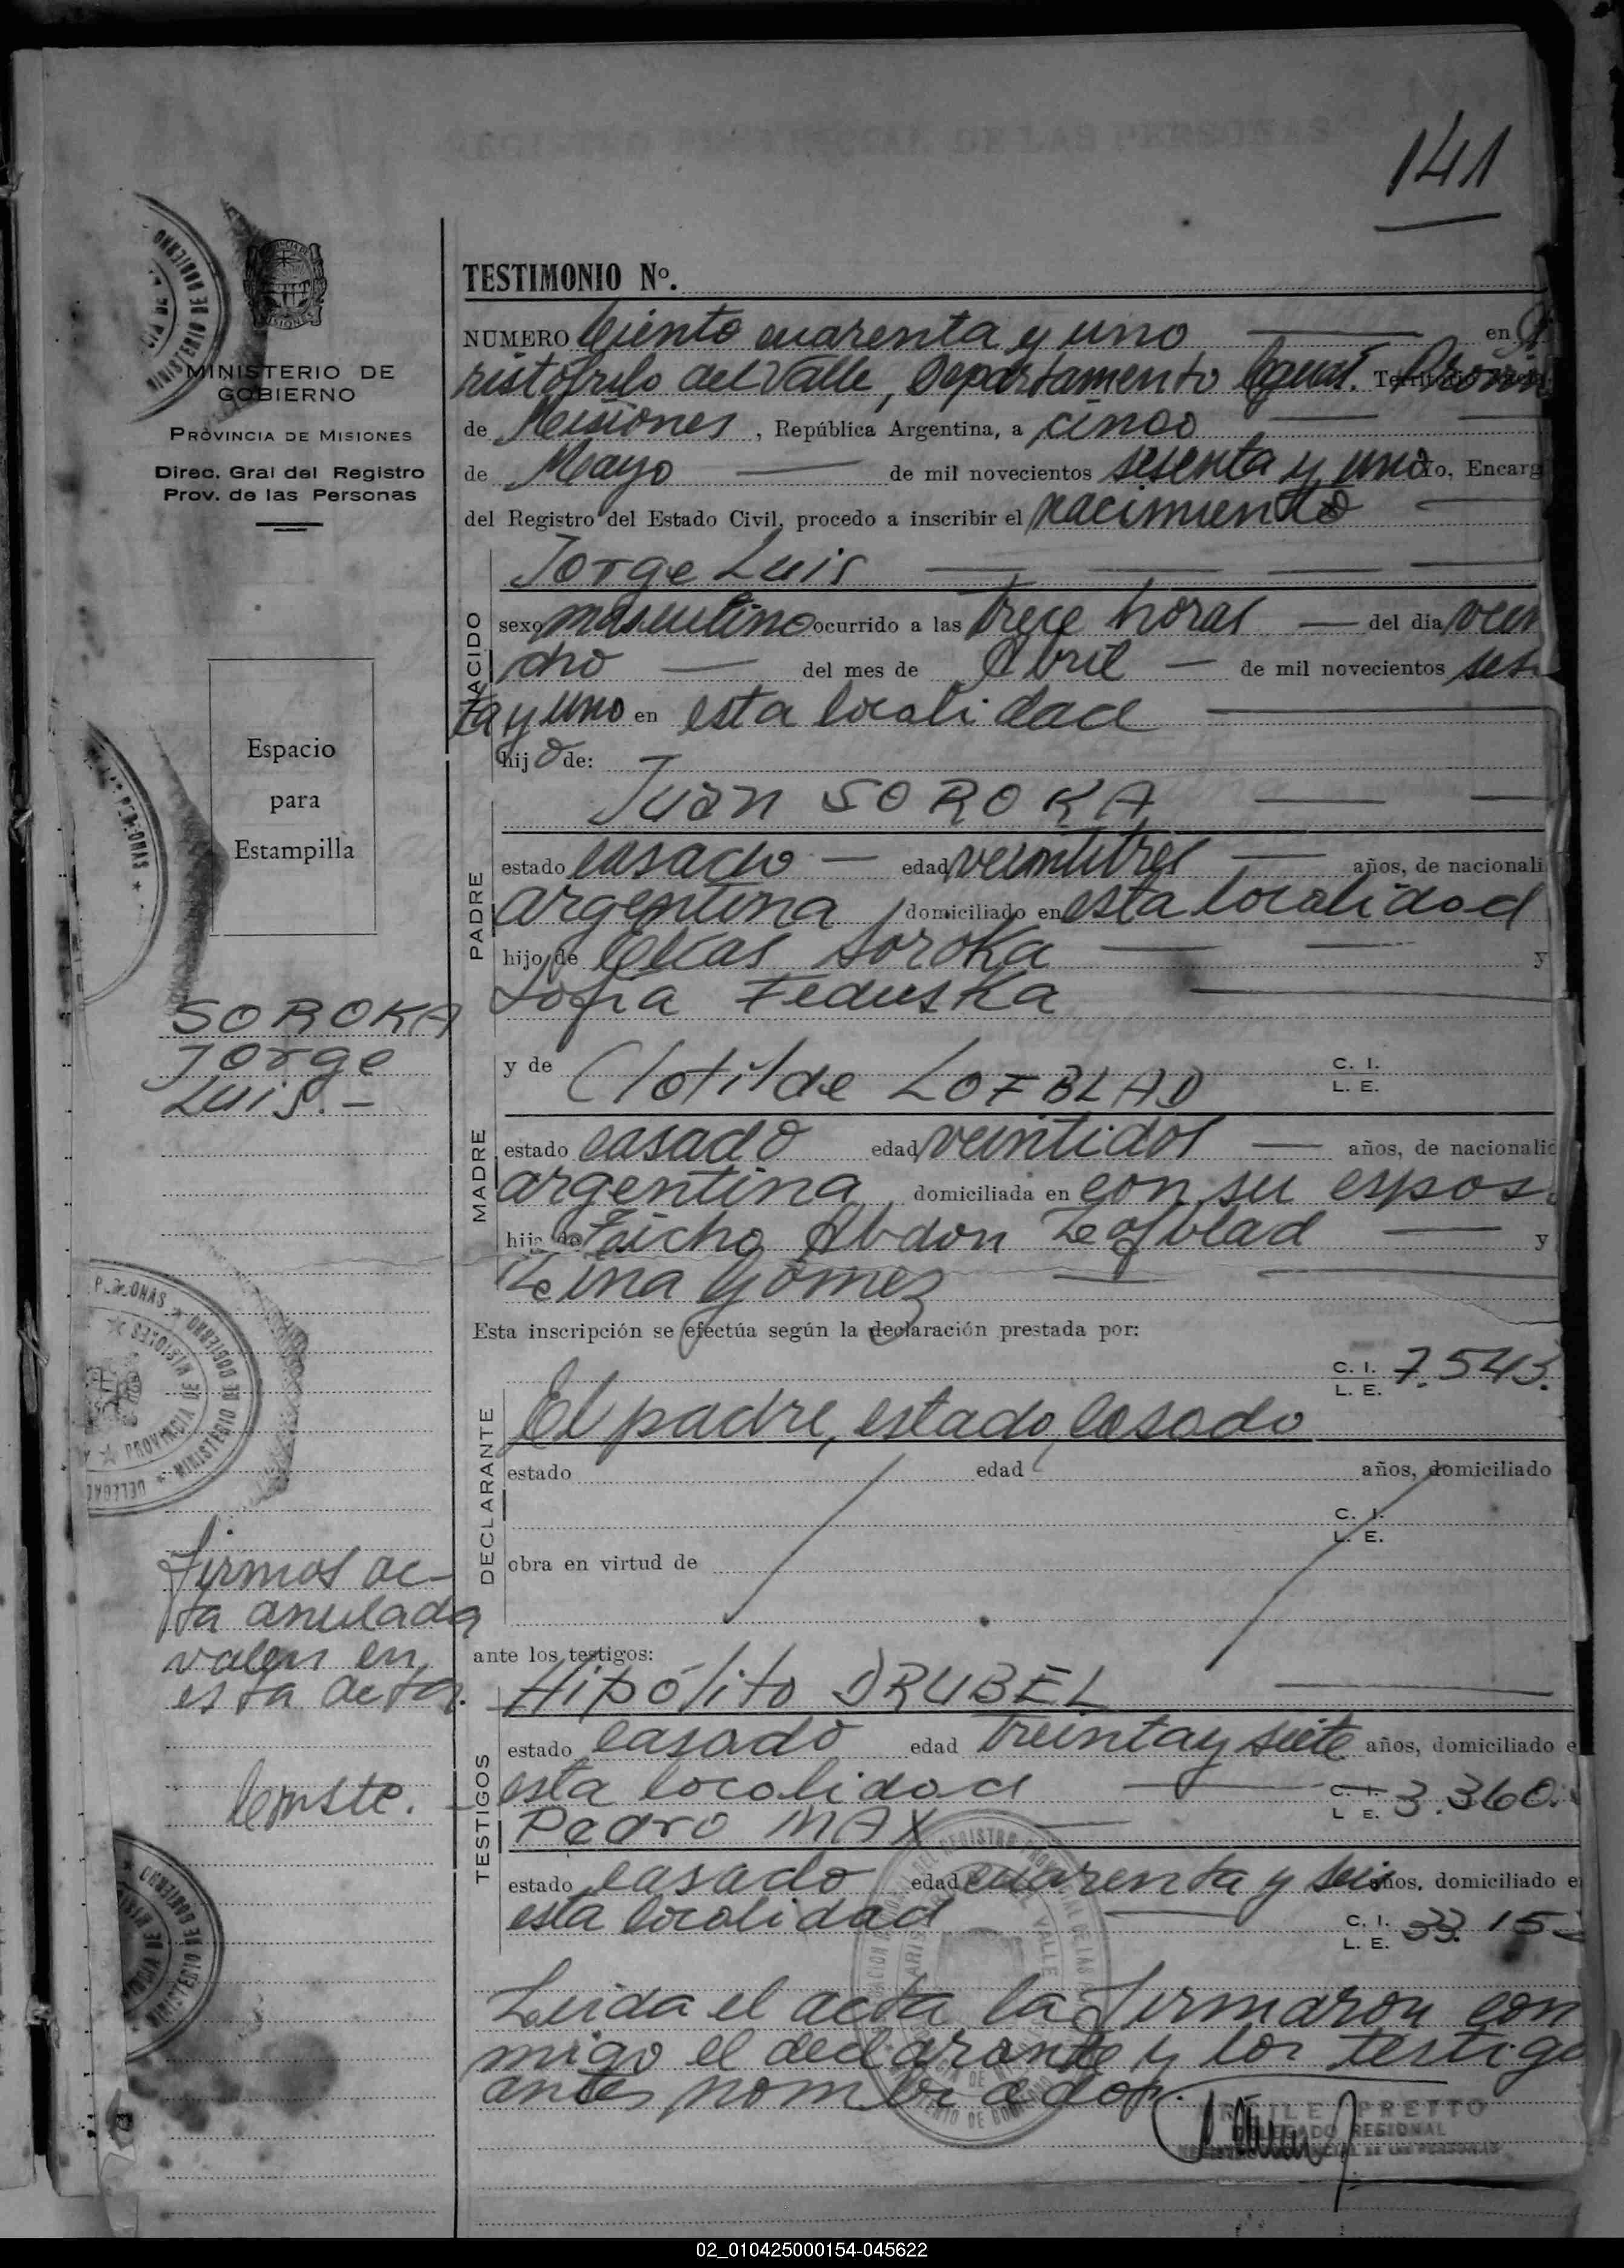 141
TESTIMONIO Nº.
NUMERO Ciento cuarenta y uno en A
ristóbulo del Valle, Departamento Caguas. Territorio Provin
de Misiones, República Argentina, a cinco
de Mayo de mil novecientos sesenta y uno Yo, Encarg
del Registro del Estado Civil, procedo a inscribir el nacimiento
NACIDO
Jorge Luis
sexo masculino ocurrido a las trece horas del día vein
cho del mes de Abril de mil novecientos sesen
ta y uno en esta localidad
hijo de:
PADRE
Juan SOROKA
estado casado edad veintitres años, de nacionali
argentina, domiciliado en esta localidad
hijo de Elias Soroka y
Sofia Feduska
MADRE
y de Clotilde LOFBLAD C. I.
L. E.
estado casado edad veintidos años, de nacionalid
argentina domiciliada en con su espos
hija de Abdon Lofblad y
Lina Gómez
Esta inscripción se efectúa según la declaración prestada por:
C. I. 7.543.
L. E.
DECLARANTE
El padre, estado casado
estado edad años, domiciliado
C. I.
L. E.
obra en virtud de
ante los testigos:
TESTIGOS
Hipólito DRUBEL
estado casado edad treinta y siete años, domiciliado e
esta localidad C. I. 3.360.
L. E.
Pedro MAX
estado casado edad cuarenta y seis años, domiciliado e
esta localidad C. I. 33.15
L. E.
Leida el acta la firmaron con
migo el declarante y los testigo
antes nombrados.
PRETTO
DELEGADO REGIONAL
MINISTERIO DE
GOBIERNO
PROVINCIA DE MISIONES
Direc. Gral del Registro
Prov. de las Personas
Espacio
para
Estampilla
SOROKA
Jorge
Luis.-
PROVINCIA DE MISIONES
MINISTERIO DE GOBIERNO
firmas ac-
ta anulada
valen en
esta acta.
Conste.
02_010425000154-045622